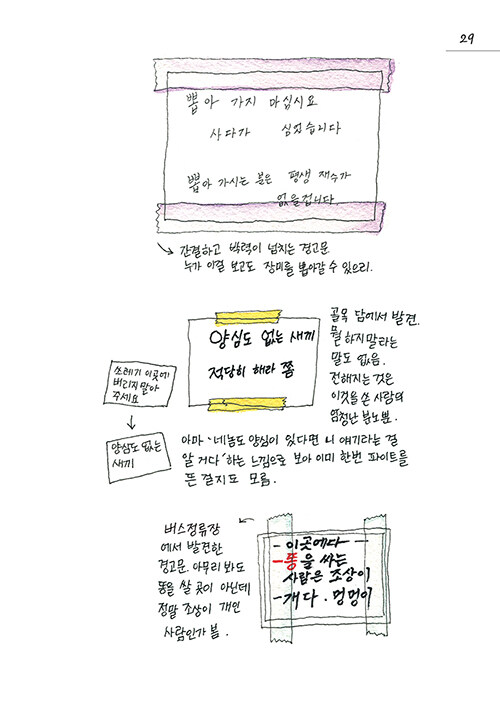 29
뽑아 가지 마십시요
사다가 심었습니다
뽑아 가시는 분은 평생 재수가
없을겁니다.
간결하고 박력이 넘치는 경고문
누가 이걸 보고도 장미를 뽑아갈 수 있으리.
양심도 없는 새끼
적당히 해라 쫌
골목 담에서 발견.
뭘 하지말라는
말도 없음.
전해지는 것은
이것을 쓴 사람의
엄청난 분노뿐.
쓰레기 이곳에
버리지 말아
주세요
양심도 없는
새끼
아마 '네놈도 양심이 있다면 니 얘기라는 걸
알 거다' 하는 느낌으로 보아 이미 한번 파이트를
뜬 걸지도 모름.
버스정류장
에서 발견한
경고문. 아무리 봐도
똥을 쌀 곳이 아닌데
정말 조상이 개인
사람인가 봄.
- 이곳에다 -
- 똥을 싸는
사람은 조상이
- 개다 . 멍멍이